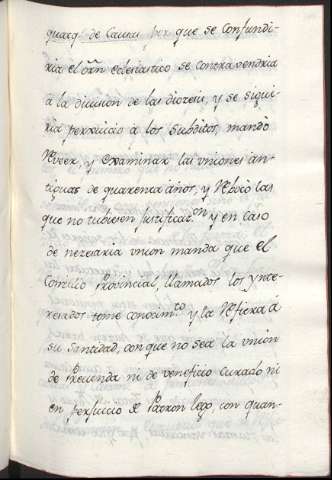 quacq.ᵉ de Causa, por que se Confundi-
ria el orñ eclesiastico se contravendria
a la division de las diocesis, y se segui-
ria perxuicio a los subditos, mandò
Rveer, y examinar las vniones an-
tiguas de quarenta años, y Rbocò las
que no tubiesen justificaz.ᵒⁿ y en caso
de nezesaria vnion manda que el
Concilio Provincial, llamados los ynte-
resados tome conocim.ᵗᵒ y la Rfiera à
su Santidad, con que no sea la vnion
de Prevenda ni de veneficio Curado ni
en perjuicio de Patron lego, con quan-